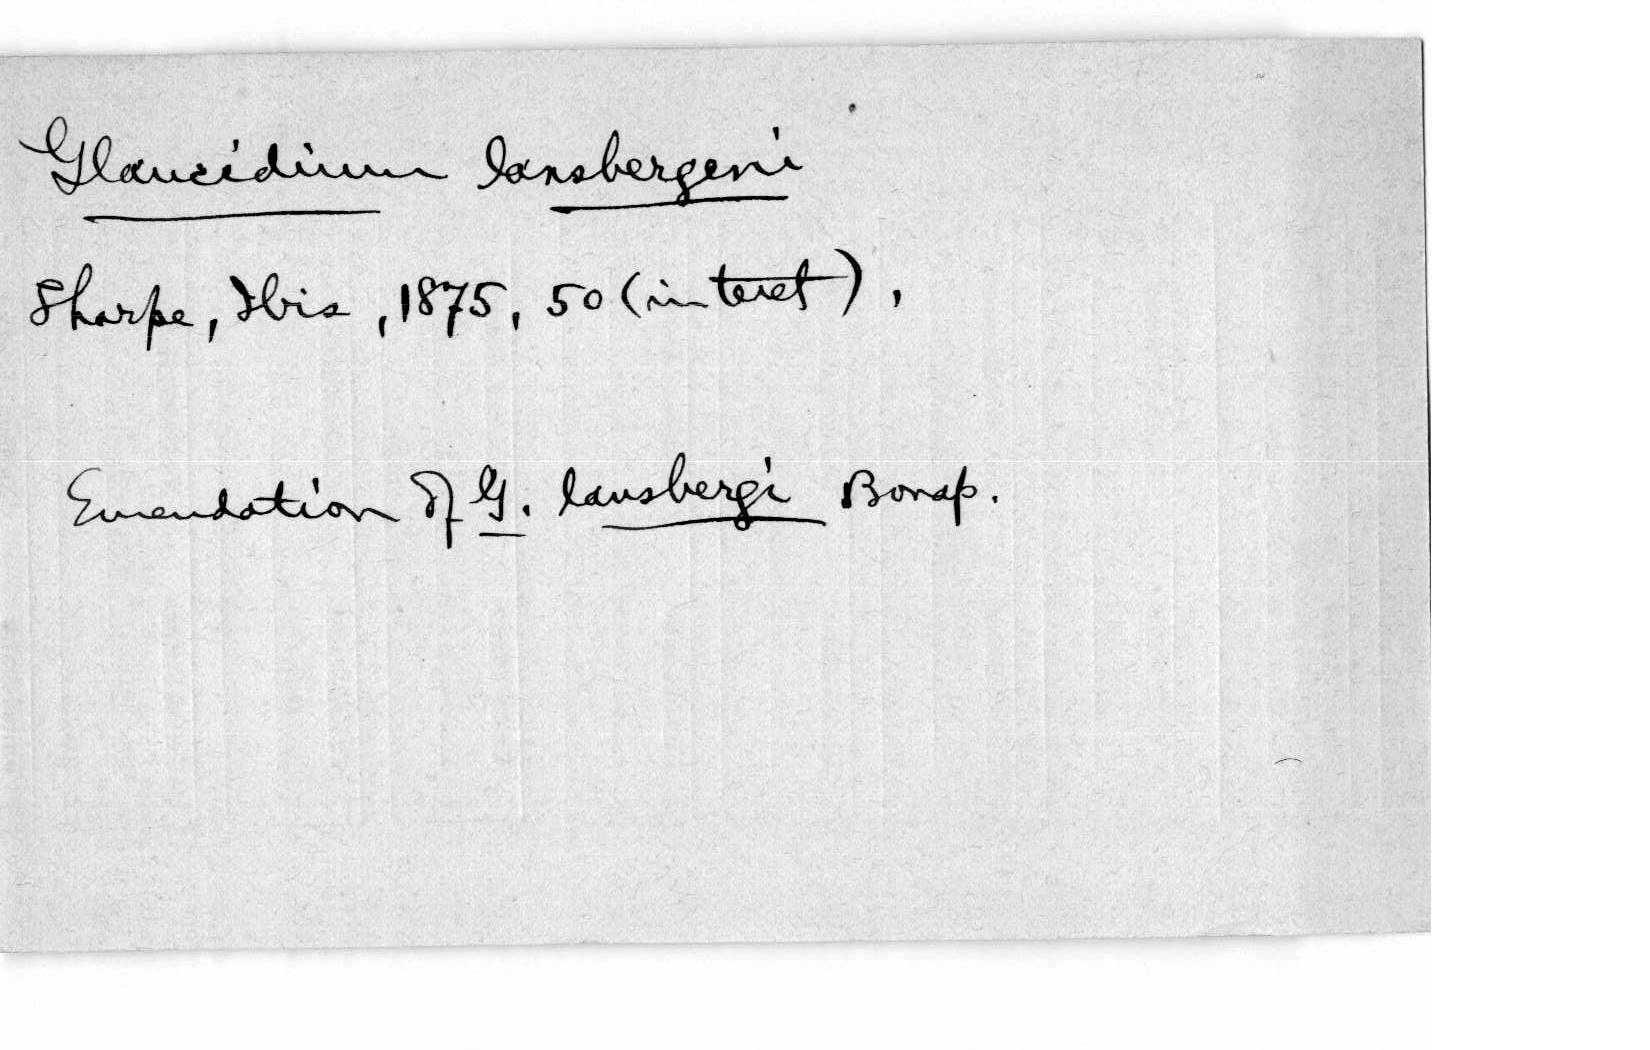 Glaucidium lansbergeni
Sharpe, Ibis, 1875, 50 (in text),
Emendation of G. lansbergi Bonap.